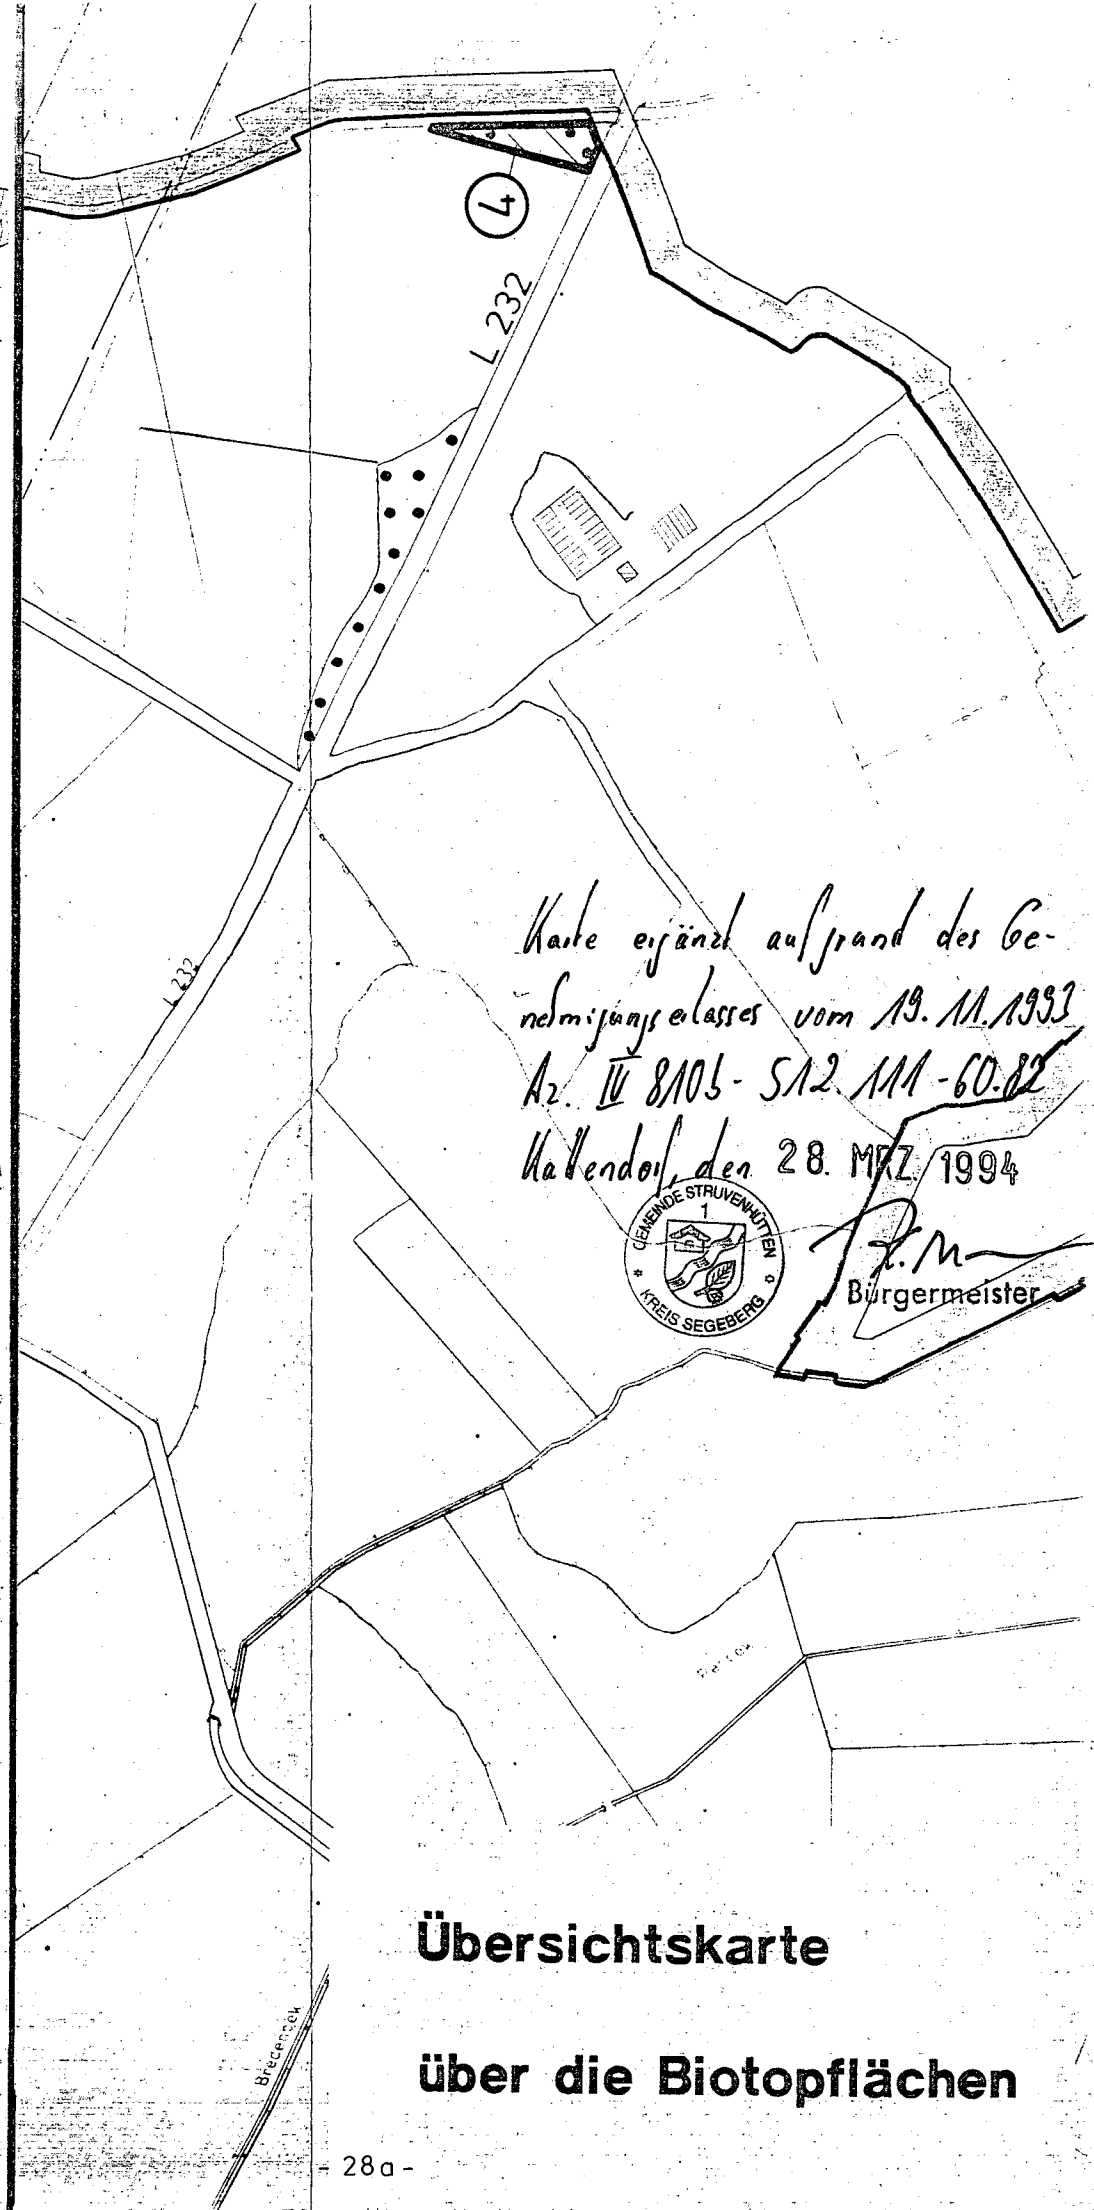 4
L 232
L 232
Karte ergänzt aufgrund des Ge-
nehmigungserlasses vom 19.11.1993
Az. IV 810b - 512.111 - 60.82
Kattendorf, den 28. MRZ. 1994
GEMEINDE STRUVENHÜTTEN
1
KREIS SEGEBERG
Bürgermeister
Übersichtskarte
über die Biotopflächen
- 28a -